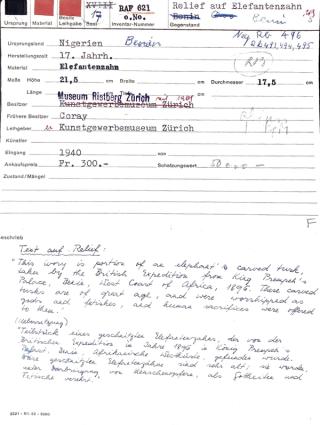 XVIII
17
RAF 621
o.No.
Relief auf Elefantenzahn
Ursprung Material Besitz Leihgabe Saal Inventar-Nummer Gegenstand
Ursprungsland Nigerien Benin
Neg Rb 496
Rb 493,494,495
Herstellungszeit 17. Jahrh.
Material Elefantenzahn
Maße Höhe 21,5 cm Breite cm Durchmesser 17,5 cm
Länge cm
Museum Rietberg Zürich
Besitzer Kunstgewerbemuseum Zürich
Frühere Besitzer Coray
Leihgeber Kunstgewerbemuseum Zürich
Künstler
Eingang 1940 von
Ankaufspreis Fr. 300.- Schatzungswert
Zustand/Mängel
F
eschrieb
Text auf Relief:
"This ivory is portion of an elephant's carved tusk,
taken by the British Expedition from King Prempeh's
Palace, Benin, West Coast of Africa, 1896. These carved
tusks are of great age, and were worshipped as
gods and fetishes, and human sacrifices were offered
to them."
(Uebersetzung)
"Teilstück eines geschnitzten Elefantenzahnes, der von der
Britischen Expedition im Jahre 1896 in König Prempeh's
Palast, Benin, Afrikanische Westküste, gefunden wurde.
Diese geschnitzten Elefantenzähne sind sehr alt; sie wurden,
unter Darbringung von Menschenopfern, als Gottheiten und
Fetische verehrt."